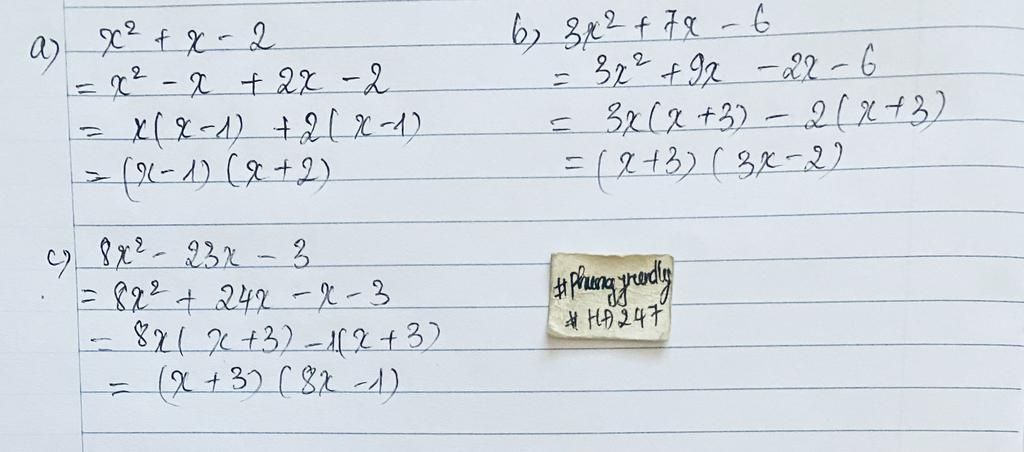 a) x² + x - 2
= x² - x + 2x - 2
= x(x-1) + 2(x-1)
= (x-1)(x+2)
b, 3x² + 7x - 6
= 3x² + 9x - 2x - 6
= 3x(x+3) - 2(x+3)
= (x+3)(3x-2)
c, 8x² - 23x - 3
= 8x² + 24x - x - 3
= 8x(x+3) - 1(x+3)
= (x+3)(8x-1)
# HA247